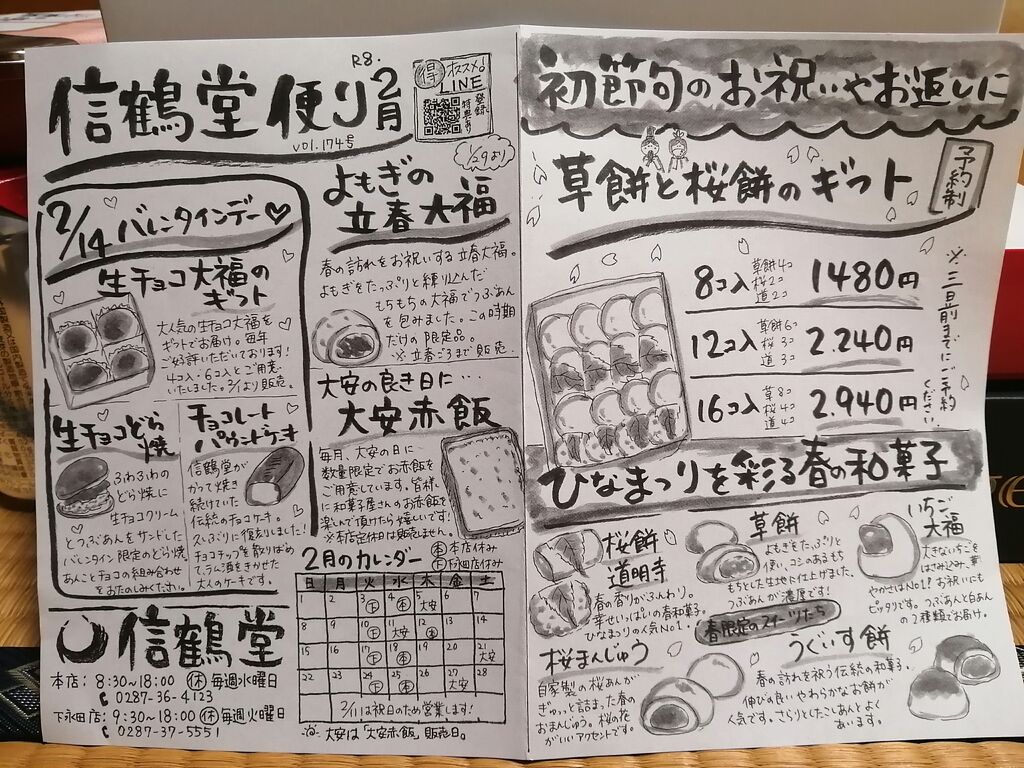 R8.
信鶴堂便り2月
vol.174号
得 オススメ!
LINE
登録
特典有
2/14 バレンタインデー
生チョコ大福の
ギフト
大人気の生チョコ大福を
ギフトでお届け。毎年
ご好評いただいております!
4コ入・6コ入とご用意
いたしました。2/1より販売。
生チョコどら焼
ふわふわの
どら焼に
生チョコクリーム
とつぶあんをサンドした
バレンタイン限定のどら焼。
あんことチョコの組み合わせ
をおたのしみください。
チョコレート
パウンドケーキ
信鶴堂が
かつて焼き
続けていた
伝統のチョコケーキ。
久しぶりに復刻しました!
チョコチップを散りばめ
て、ラム酒をきかせた
大人のケーキです。
1/29より
よもぎの
立春大福
春の訪れをお祝いする立春大福。
よもぎをたっぷりと練り込んだ
もちもちの大福でつぶあん
を包みました。この時期
だけの限定品。
※立春ごろまで販売
大安の良き日に…
大安赤飯
毎月、大安の日に
数量限定でお赤飯を
ご用意しています。皆様
に和菓子屋さんのお赤飯を
楽しんで頂けたら嬉しいです!
※本店定休日は販売しません。
2月のカレンダー
本 本店休み
下 下永田店休み
日 月 火 水 木 金 土
1 2 3 下 4 本 5 大安 6 7
8 9 10 下 11 大安 12 本 13 14
15 16 17 下 18 本 19 20 21 大安
22 23 24 下 25 本 26 27 大安 28
2/11は祝日のため営業します!
大安は「大安赤飯」販売日。
信鶴堂
本店: 8:30~18:00 休 毎週水曜日
0287-36-4123
下永田店: 9:30~18:00 休 毎週火曜日
0287-37-5551
初節句のお祝いやお返しに
草餅と桜餅のギフト
予約制
8コ入 草餅4コ 桜2コ 道2コ 1480円
12コ入 草餅6コ 桜3コ 道3コ 2.240円
16コ入 草8コ 桜4コ 道4コ 2.940円
※三日前までにご予約ください。
ひなまつりを彩る春の和菓子
桜餅
道明寺
春の香りがふんわり。
幸せいっぱいの春和菓子。
ひなまつりの人気No.1。
草餅
よもぎをたっぷりと
使い、コシのあるもち
もちとした生地に仕上げました。
つぶあんが濃厚です!
いちご
大福
大きないちごを
はさみ込み、華
やかさはNo1。お祝いにも
ピッタリです。つぶあんと白あん
の2種類でお届け。
春限定のスイーツたち
桜まんじゅう
自家製の桜あんが
ぎゅっと詰まった春の
おまんじゅう。桜の花
がいいアクセントです。
うぐいす餅
春の訪れを祝う伝統の和菓子。
伸び良いやわらかなお餅が
人気です。さらりとしたこしあんとよく
あいます。